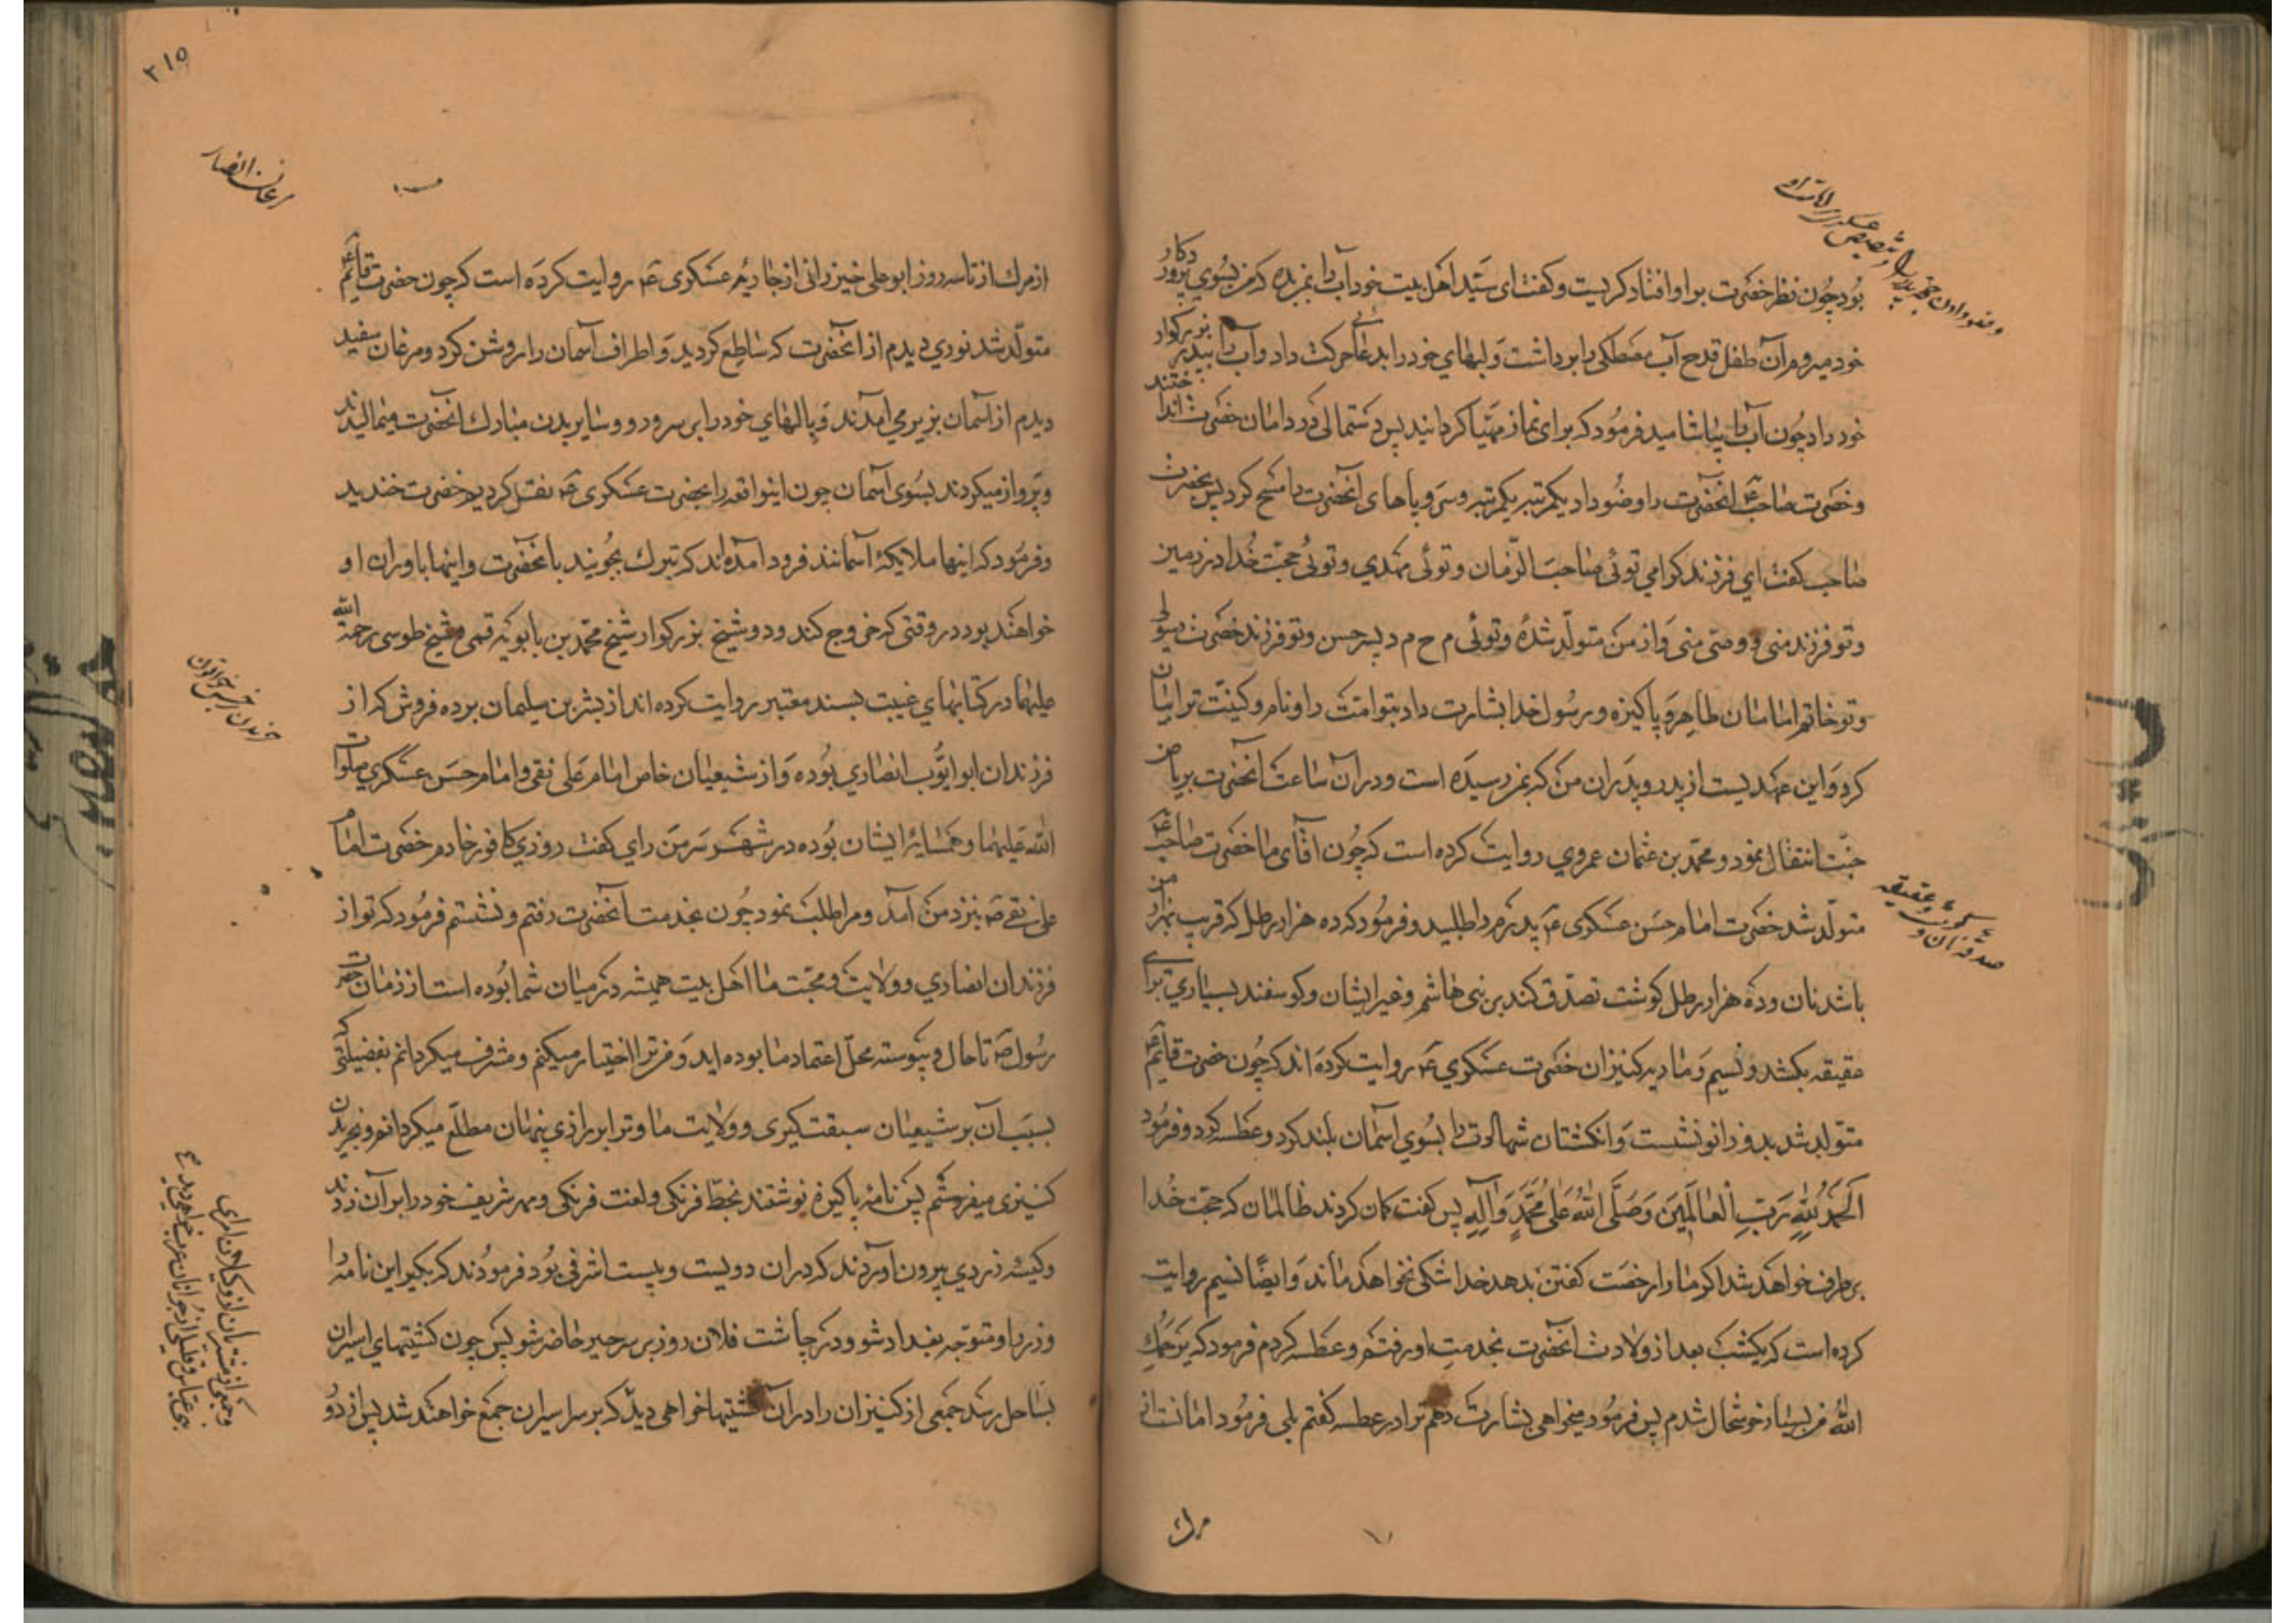 بود چون نظر حضرت بر او افتاد گریست و گفت ای سید اهل بیت خود آب را بمن بده که من بسوی پروردگار
خود میروم آن طفل قدح آب مصطکی را برداشت و لبهای خود را بدعائی حرکت داد و آب را بپدر بزرگوار
خود داد چون آب را بیاشامید فرمود که برای نماز مهیا گردانید پس دستمالی در دامان حضرت انداختند
و حضرت صاحب ع آنحضرت را وضو داد یکمرتبه یکمرتبه و سر و پاهای آنحضرت را مسح کرد پس حضرت
صاحب گفت ای فرزند گرامی توئی صاحب الزمان و توئی مهدی و توئی حجت خدا در زمین
و تو فرزند منی و وصی منی و از من متولد شدهٔ و توئی م ح م د پسر حسن و تو فرزند حضرت رسولی
و تو خاتم امامان طاهر و پاکیزه و رسول خدا بشارت داد بتو امت را و نام و کنیت ترا بیان
کرد و این عهدیست از پدر و پدران من که بمن رسیده است و در آن ساعت آنحضرت بریاض
جنت انتقال نمود و محمد بن عثمان عمروی روایت کرده است که چون آقای ما حضرت صاحب ع
متولد شد حضرت امام حسن عسکری ع پدرم را طلبید و فرمود که ده هزار رطل که قریب بهزار من
باشد نان و ده هزار رطل گوشت تصدق کند بر بنی هاشم و غیر ایشان و گوسفند بسیاری برای
عقیقه بکشد و نسیم و ماریه کنیزان حضرت عسکری ع روایت کرده اند که چون حضرت قائم ع
متولد شد بدو زانو نشست و انگشتان شهادت را بسوی آسمان بلند کرد و عطسه کرد و فرمود
الحمد لله رب العالمین و صلی الله علی محمد و آله پس گفت گمان کردند ظالمان که حجت خدا
برطرف خواهد شد اگر ما را رخصت گفتن بدهد خدا شکی نخواهد ماند و ایضا نسیم روایت
کرده است که یکشب بعد از ولادت آنحضرت بخدمت او رفتم و عطسه کردم فرمود که یرحمک
الله من بسیار خوشحال شدم پس فرمود میخواهی بشارت دهم ترا در عطسه گفتم بلی فرمود امانست
صدقه نان و گوشت و عقیقه
٢١٥
مرغان انصار
از مرك از تا سه روز ابو علی خیزرانی از جاریهٔ عسکری ع روایت کرده است که چون حضرت قائم ع
متولد شد نوری دیدم از آنحضرت که ساطع گردید و اطراف آسمان را روشن کرد و مرغان سفید
دیدم از آسمان بزیر می آمدند و بالهای خود را بر سر و رو و سایر بدن مبارك آنحضرت میمالیدند
و پرواز میکردند بسوی آسمان چون اینواقعه را بحضرت عسکری ع نقل کردیم حضرت خندید
و فرمود که اینها ملایکهٔ آسمانند فرود آمده اند که تبرك بجویند بآنحضرت و اینها یاوران او
خواهند بود در وقتی که خروج کند و دو شیخ بزرگوار شیخ محمد بن بابویه قمی و شیخ طوسی رحمة الله
علیهما در کتابهای غیبت بسند معتبر روایت کرده اند از بشر بن سلیمان برده فروش که از
فرزندان ابو ایوب انصاری بوده و از شیعیان خاص امام علی نقی و امام حسن عسکری صلوات
الله علیهما و همسایهٔ ایشان بوده در شهر سر من رای گفت روزی کافور خادم حضرت امام
علی نقی ع بنزد من آمد و مرا طلب نمود چون بخدمت آنحضرت رفتم و نشستم فرمود که تو از
فرزندان انصاری و ولایت و محبت ما اهل بیت همیشه در میان شما بوده است از زمان حضرت
رسول ص تا حال و پیوسته محل اعتماد ما بوده اید و من ترا اختیار میکنم و مشرف میگردانم بفضیلتی که
بسبب آن بر شیعیان سبقت گیری و ولایت ما و ترا بر رازی پنهان مطلع میگردانم و بخریدن
کنیزی میفرستم پس نامهٔ پاکیزه نوشتند بخط فرنگی و لغت فرنگی و مهر شریف خود را بر آن زدند
و کیسهٔ زردی بیرون آوردند که در آن دویست و بیست اشرفی بود فرمودند که بگیر این نامه را
و زر را و متوجه بغداد شو و در چاشت فلان روز بر سر جسر حاضر شو پس چون کشتیهای اسیران
بساحل رسد جمعی از کنیزان را در آن کشتیها خواهی دید که بر سر اسیران جمع خواهند شد پس از دو
خریدن نرجس خاتون
و جمعی از مشتریان از وکیلان امرای
بنی عباس و قلیلی از جوانان عرب خواهی دید